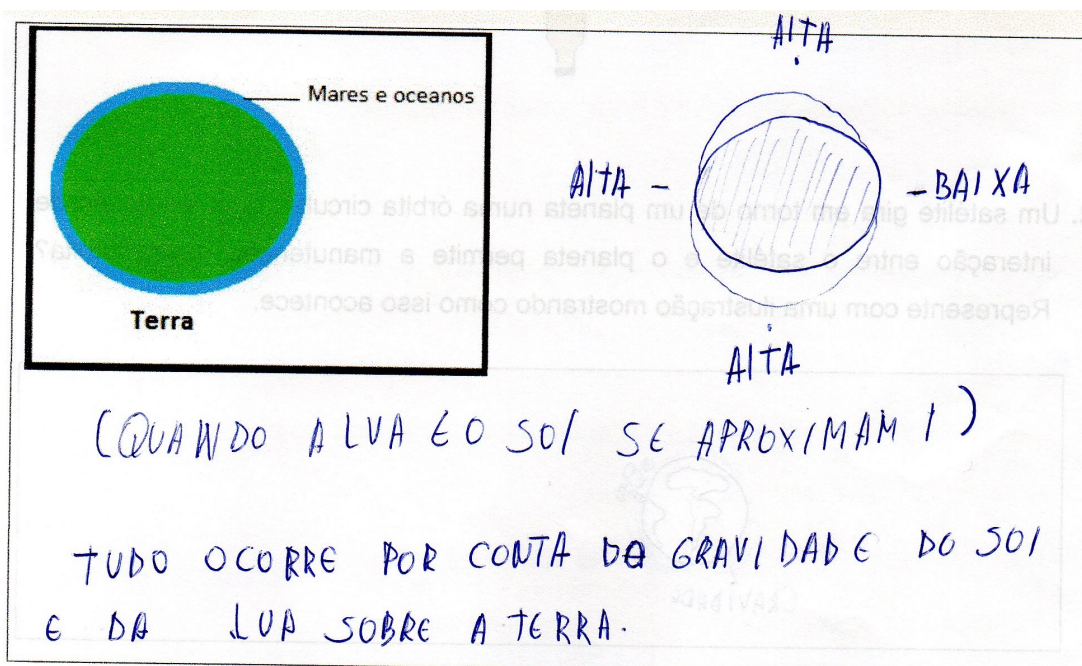 Mares e oceanos
Terra
ALTA
ALTA - - BAIXA
ALTA
(QUANDO A LUA E O SOL SE APROXIMAM)
TUDO OCORRE POR CONTA DA GRAVIDADE DO SOL
E DA LUA SOBRE A TERRA.